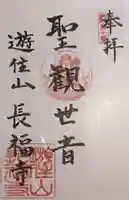 奉拝
聖觀世音
遊住山 長福寺